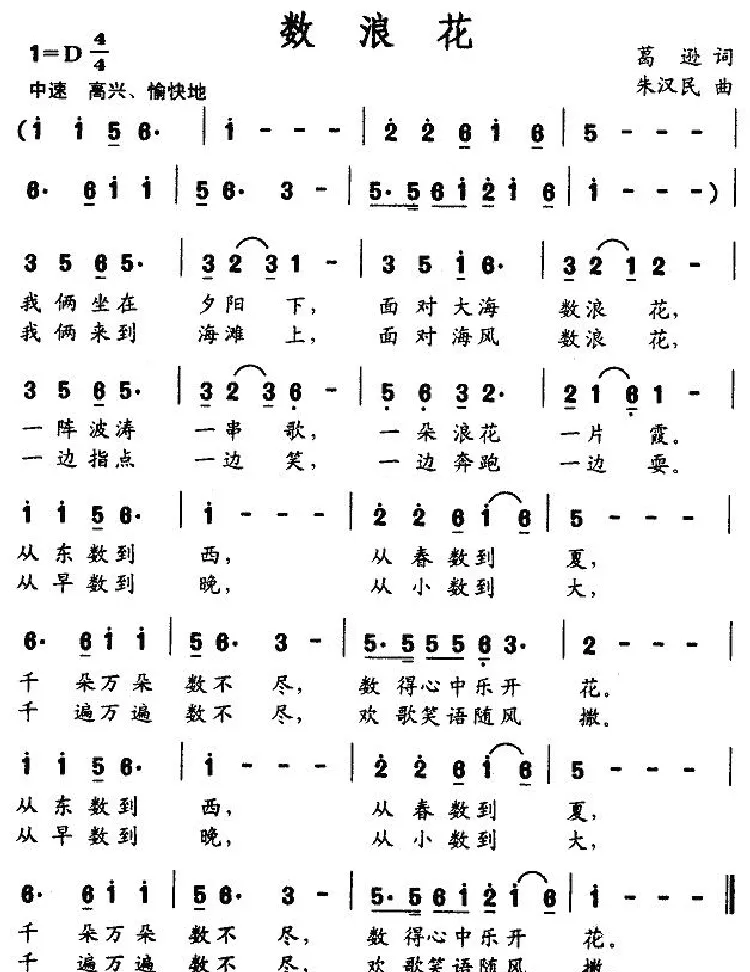 数浪花
1=D 4/4
葛逊词
中速 高兴、愉快地
朱汉民曲
(i i 5 6· | i - - - | 2 2 6 i 6 | 5 - - - |
6· 6 i i | 5 6· 3 - | 5· 5 6 i 2 i 6 | i - - - ) |
3 5 6 5· | 3 2 3 1 - | 3 5 i 6· | 3 2 1 2 - |
我俩坐在 夕阳下, 面对大海 数浪花,
我俩来到 海滩上, 面对海风 数浪花,
3 5 6 5· | 3 2 3 6 - | 5 6 3 2· | 2 1 6 1 - |
一阵波涛 一串歌, 一朵浪花 一片霞。
一边指点 一边笑, 一边奔跑 一边耍。
i i 5 6· | i - - - | 2 2 6 i 6 | 5 - - - |
从东数到 西, 从春数到 夏,
从早数到 晚, 从小数到 大,
6· 6 i i | 5 6· 3 - | 5· 5 5 5 6 3· | 2 - - - |
千朵万朵 数不尽, 数得心中乐开 花。
千遍万遍 数不尽, 欢歌笑语随风 撒。
i i 5 6· | i - - - | 2 2 6 i 6 | 5 - - - |
从东数到 西, 从春数到 夏,
从早数到 晚, 从小数到 大,
6· 6 i i | 5 6· 3 - | 5· 5 6 i 2 i 6 | i - - - ‖
千朵万朵 数不尽, 数得心中乐开 花。
千遍万遍 数不尽, 欢歌笑语随风 撒